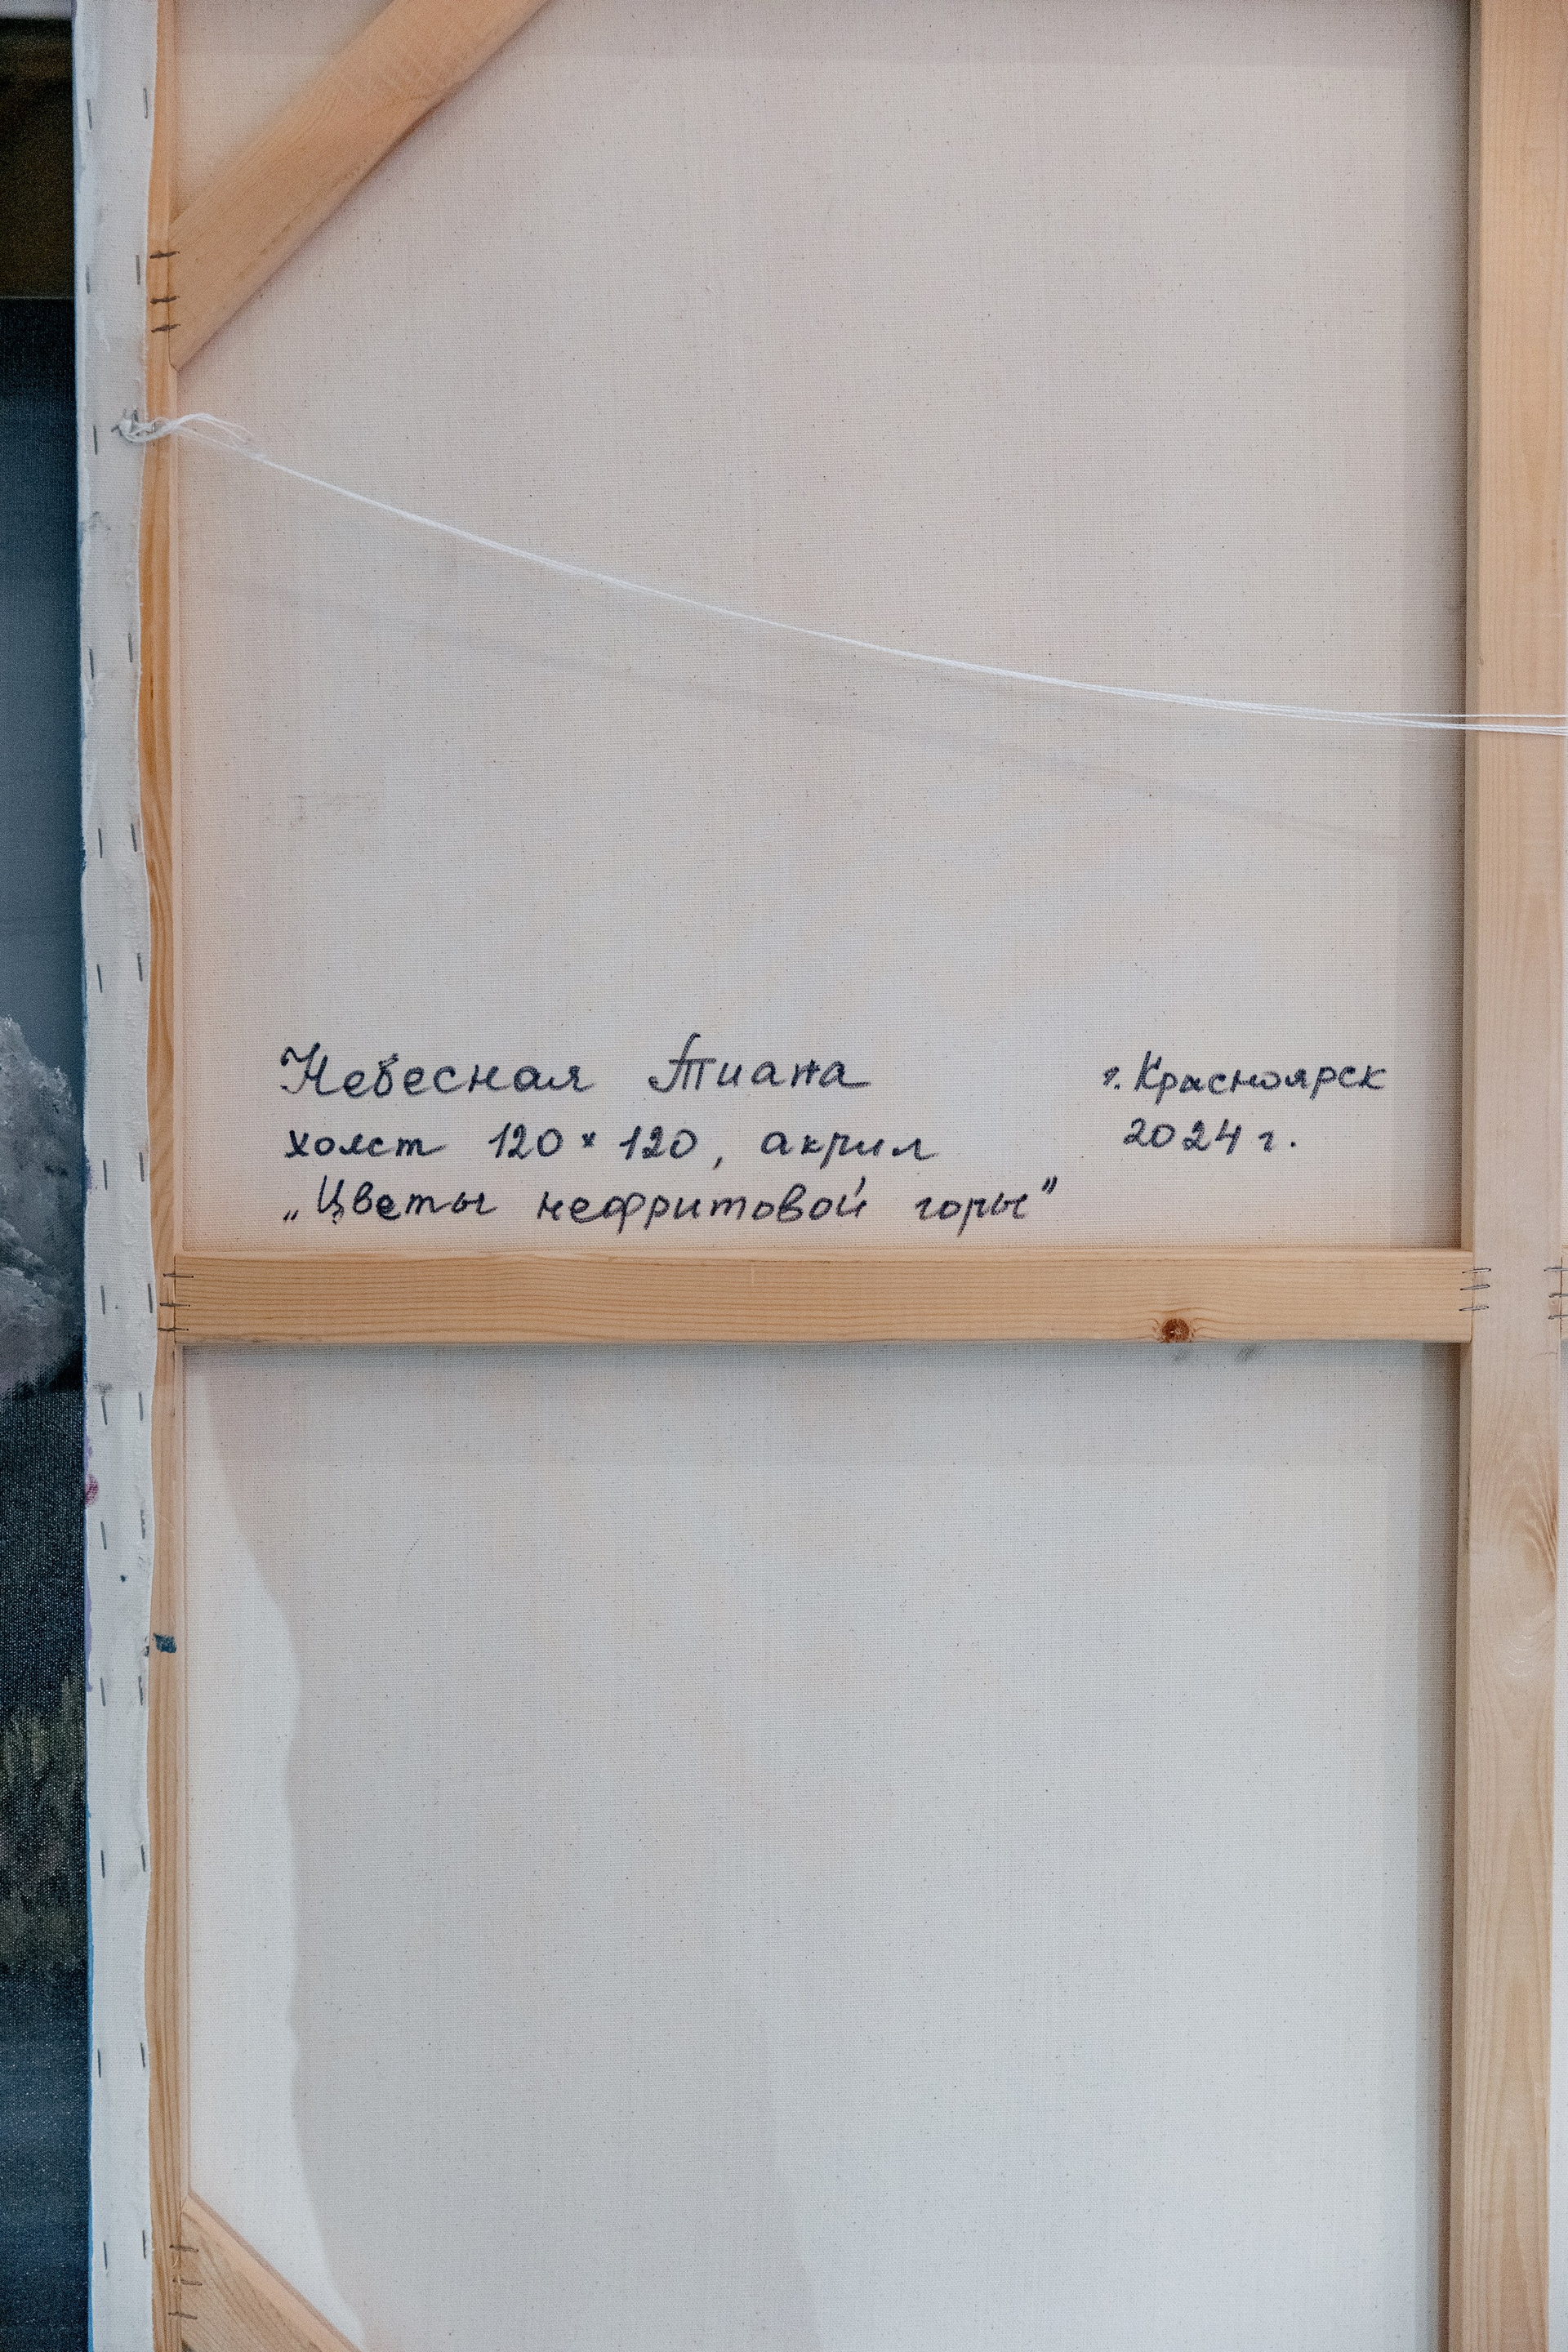 Небесная Тиана
г. Красноярск
холст 120×120, акрил
2024 г.
„Цветы нефритовой горы”